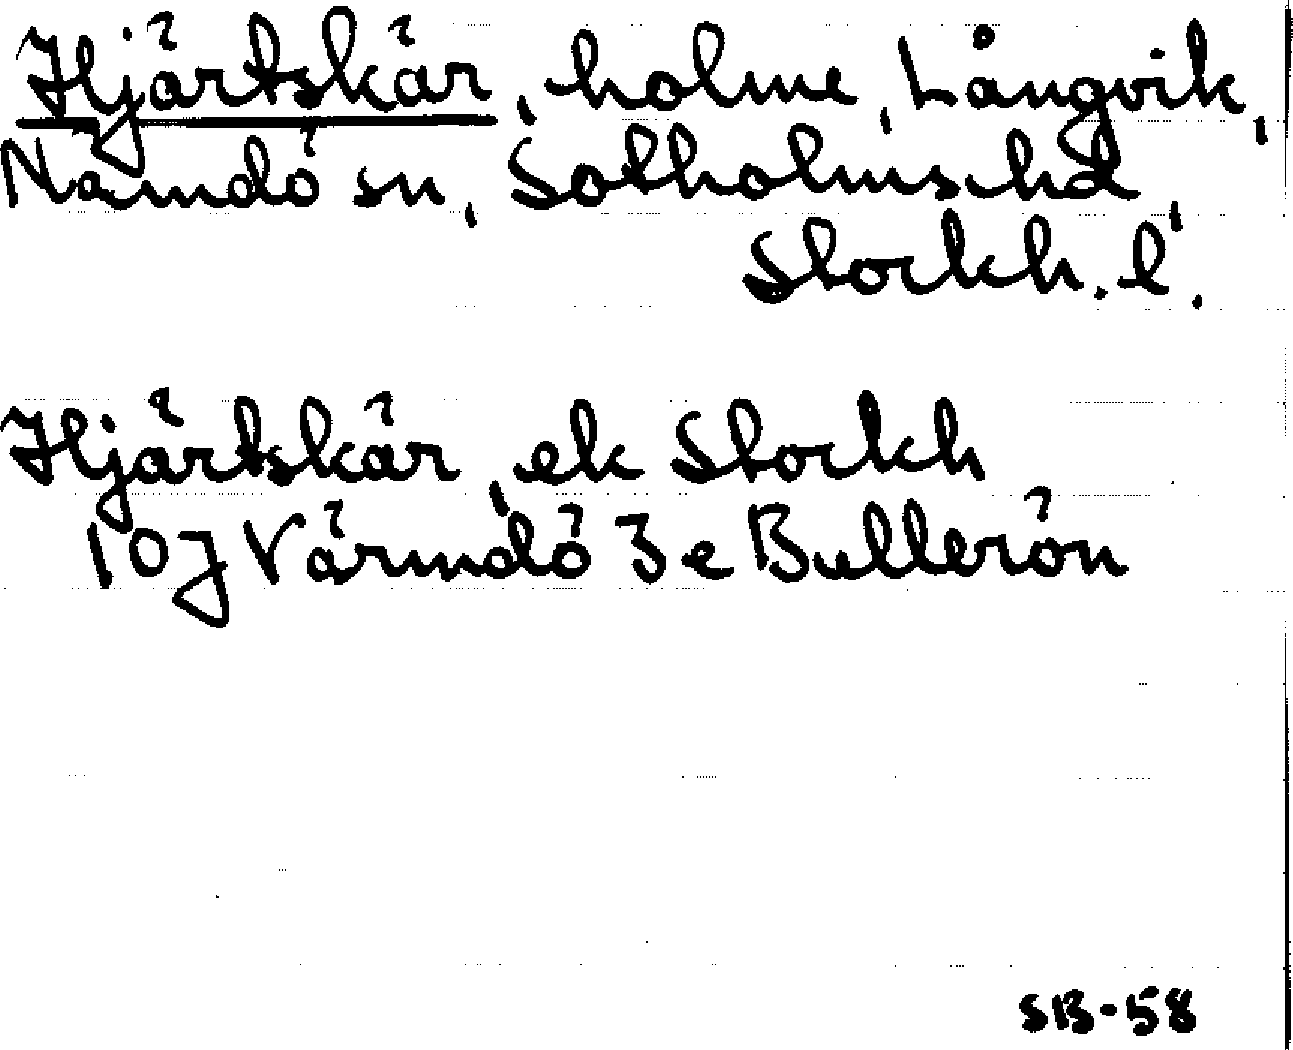 Hjärtskär, holme, Långvik,
Nämdö sn, Sotholms hd,
Stockh. l.
Hjärtskär, ek Stockh
10J Värmdö 3e Bullerön
SB-58